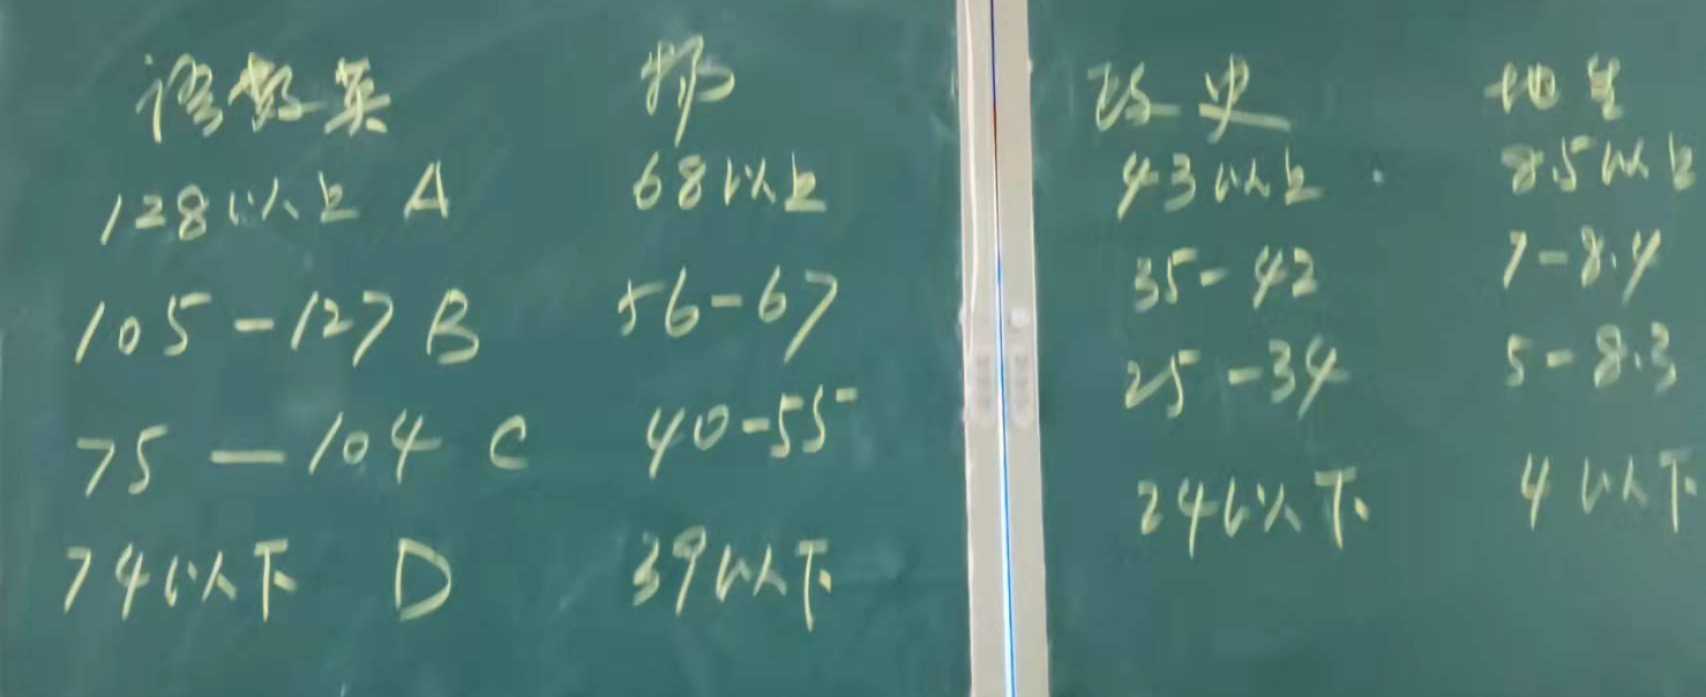 语数英 物 政史 地生
128以上 A 68以上 43以上 8.5以上
105-127 B 56-67 35-42 7-8.4
75-104 C 40-55 25-34 5-8.3
74以下 D 39以下 24以下 4以下